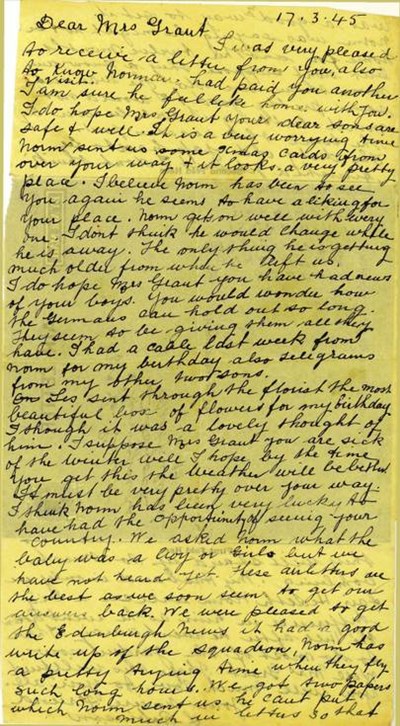 17.3.45
Dear Mrs Grant
I was very pleased
to receive a letter from you, also
to know Norman had paid you another
visit.
I am sure he full like home with you.
I do hope Mrs Grant your dear sons are
safe & well. It is a very worrying time
Norm sent us some Xmas Cards from
over your way & it looks a very pretty
place. I believe Norm has been to see
you again he seems to have a liking for
your place. Norm get on well with every
one. I dont think he would change while
he is away. The only thing he is getting
much older from when he left us.
I do hope Mrs Grant you have had news
of your boys. You would wonder how
the Germans can hold out so long.
They seem to be giving them all they
have. I had a cable last week from
Norm for my birthday also telegrams
from my other two sons.
Les sent through the florist the most
beautiful box of flowers for my birthday
I though it was a lovely thought of
him. I suppose Mrs Grant you are sick
of the winter well I hope by the time
you get this the weather will be better
It must be very pretty over your way.
I think Norm has been very lucky to
have had the opportunity seeing your
country. We asked Norm what the
baby was a boy or girls but we
have not heard yet. These airletters are
the best as we soon seem to get our
answers back. We were pleased to get
the Edinburgh News it had a good
write up of the squadron, Norm has
a pretty trying time when they fly
such long hours. We got two papers
which Norm sent us he cant put
much in letters so that